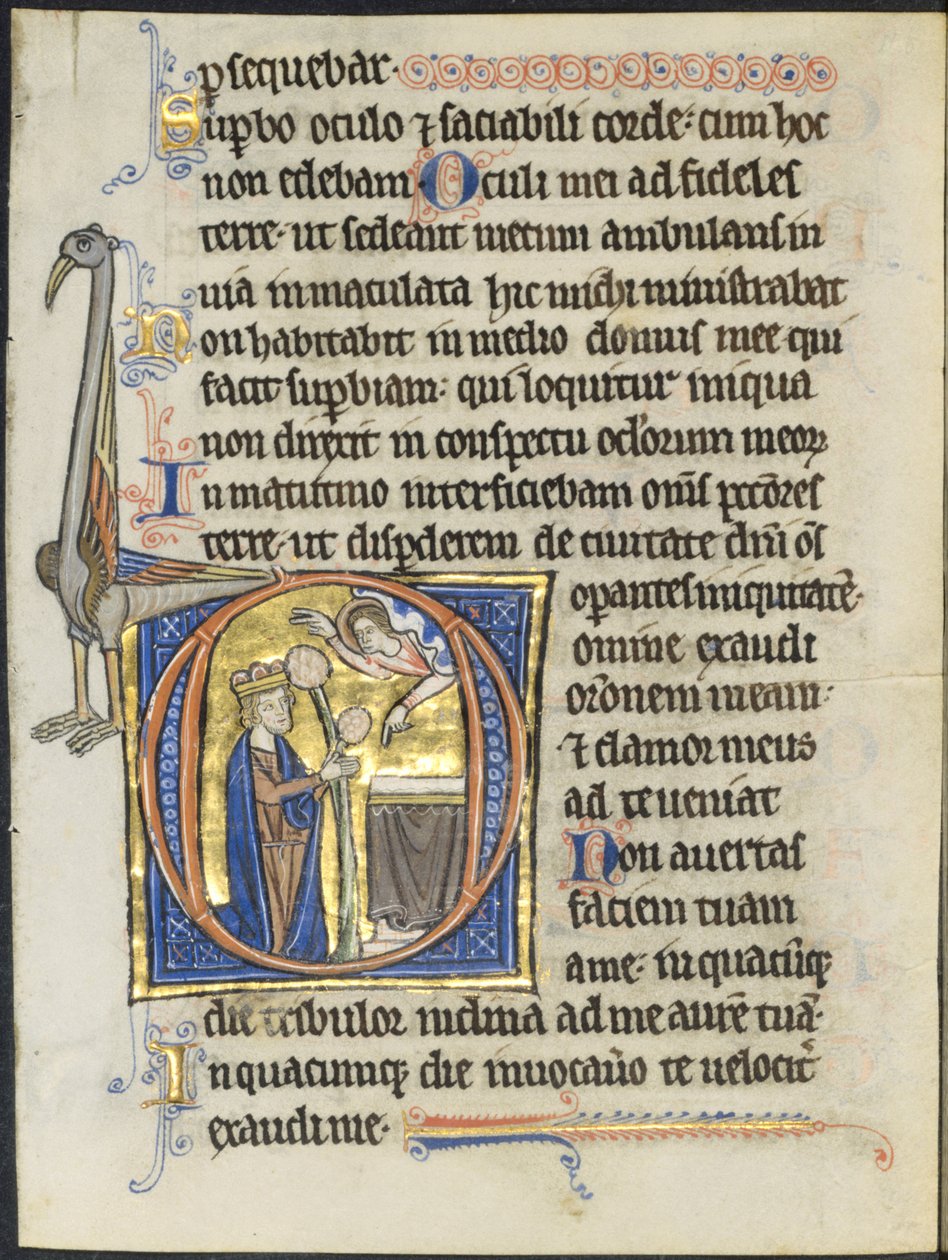 p̱sequebar·
Suꝑbo oculo ⁊ saciabili corde: cum hoc
non edebam· Oculi mei ad fideles
terre· ut sedeant mecum ambulans in
uia inmaculata hic michi ministrabat
Non habitabit in medio domus mee qui
facit suꝑbiam: qui loquitur iniqua
non direxit in conspectu oculorum meoꝝ
In matutino interficiebam omīs pctōres
terre· ut disꝑderem de ciuitate dn̄i om̄s
oꝑantes iniquitatē·
Domine exaudi
orōnem meam:
⁊ clamor meus
ad te ueniat
Non auertas
faciem tuam
a me: in quacūqꝫ
die tribulor inclina ad me aurē tuā·
In quacumqꝫ die inuocau̾o te uelocit̾
exaudi me·